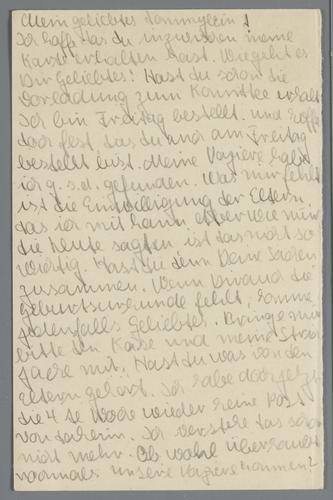 Mein geliebtes Tommylein!
Ich hoffe das du inzwischen meine
Karte erhalten hast. Wie geht es
Dir Geliebtes? Hast du schon die
Vorladung zum Komitee erhalt
Ich bin Freitag bestellt und hoffe
doch fest das du auch am Freitag
bestellt bist. Meine Papiere habe
ich g. s. d. gefunden. Was mir fehlt
ist die Einwilligung der Eltern
das ich mit kann aber wie mir
die Leute sagten ist das nicht so
wichtig. Hast du denn Deine Sachen
zusammen. Wenn Dir auch die
Geburtsurkunde fehlt, komme
jedenfalls Geliebtes. Bringe mir
bitte den Käse und meine
jacke mit. Hast du was von den
Eltern gehört. Ich habe doch jetzt
die 4 te Woche wieder keine Post
von daheim. Ich verstehe das schon
nicht mehr. Ob wohl überhaupt
nochmals unsere Papiere kommen?